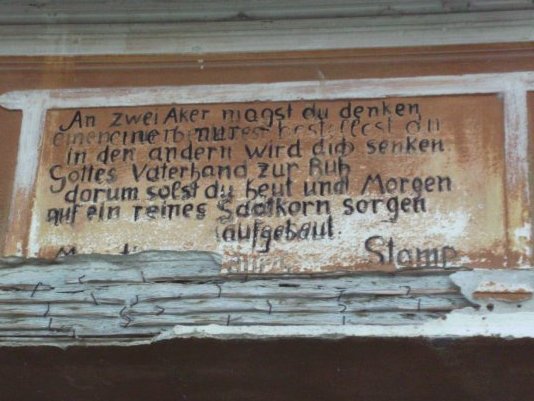 An zwei Aker magst du denken
einen nur du
in den andern wird dich senken
Gottes Vaterhand zur Ruh
dorum solst du heut und Morgen
auf ein reines Saatkorn sorgen
aufgebaut.
Stamp